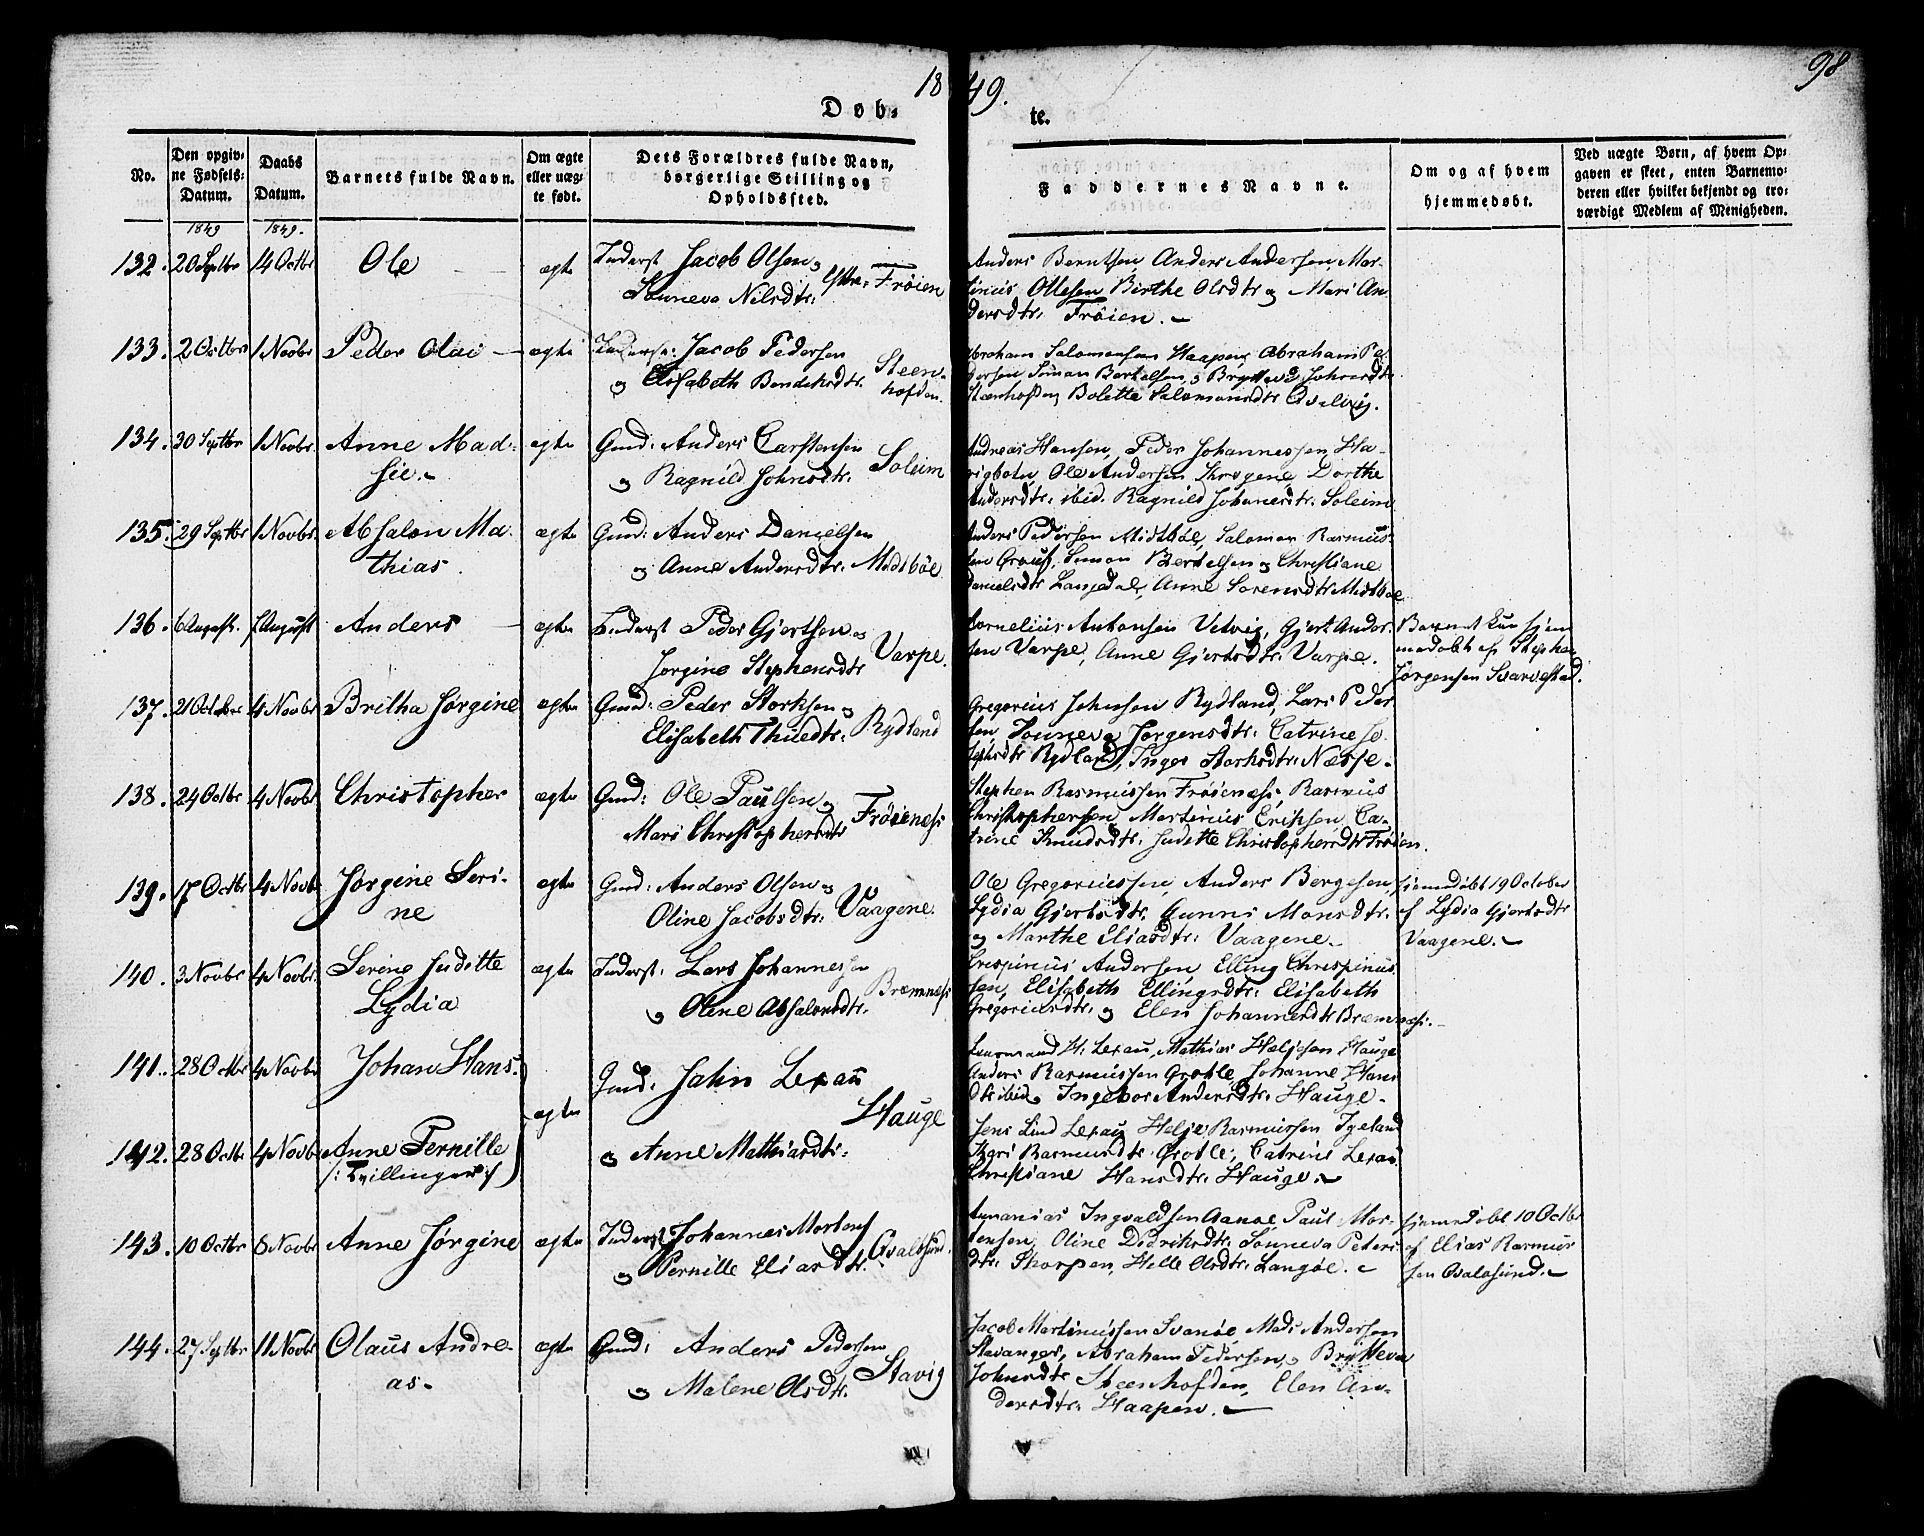 18 49.
98
Døb- te.
No.
Den opgiv-
ne Fødsels-
Datum.
Daabs
Datum.
Barnets fulde Navn.
Om ægte
eller uæg-
te født.
Dets Forældres fulde Navn,
borgerlige Stilling og
Opholdssted.
Faddernes Navne.
Om og af hvem
hjemmedøbt.
Ved uægte Børn, af hvem Op-
gaven er skeet, enten Barnemo-
deren eller hvilket bekjendt og tro-
værdigt Medlem af Menigheden.
1849 1849.
132. 20 Septbr 14 Octbr Ole ægte Inderst Jacob Olsen og
Sonneva Nilsdtr: Frøien
Anders Berntsen, Anders Andersen, Mar-
tinius Ollesen Birthe Olsdtr og Mari An
dersdtr: Frøien. -
133. 2 Octbr 1 Novbr Peder Olai ægte Jacob Pedersen
og Elisabeth Bendiksdtr. Steen-
hofden.
Abraham Salomonsen Haapen, Abraham Pe
dersen Simon Bertelsen, og Brytteva Johnsdtr
Steenhofden, Bolette Salomonsdtr Qvalvig.
134. 30 Septbr 1 Novbr. Anne Mad-
sie. ægte Gmd: Anders Carstensen
og Ragnild Johnsdtr. Soleim
Andreas Hansen, Peder Johannessen Ha-
vigbotn, Ole Andersen Dorthe
Andersdtr. ibid. Ragnild Johansdtr. Soleim
135. 29 Septbr 1 Novbr. Absalon Ma-
thias. ægte Gmd: Anders Danielsen
og Anne Andersdtr. Midtbøe
Anders Pedersen Midtbøe, Salomon Rasmus-
sen Simon Bertelsen og Christiane
Danielsdtr Langedal, Anne Sørensdtr Midtbøe
136. 6 August. 7 August Anders ægte Inderst Peder Gjertsen og
Jørgine Stephensdtr Varpe.
Cornelius Antonsen Vetvig, Gjert Ander-
sen Varpe, Anne Gjertsdtr: Varpe.
Barnet kun hjem
medøbt af Stephen
Jørgensen Svarvestad.
137. 21 Octobr 4 Novbr Britha Jørgine ægte Gmd: Peder Storksen og
Elisabeth Thuedtr: Rydland
Gregorius Johnsen Rydland, Lars Peder
sen, Sonneva Jørgensdtr: Catrine Jo-
sephsdtr Rydland, Inger Storksdtr: Nesse.
138. 24 Octbr 4 Novbr. Christopher ægte Gmd: Ole Paulsen og
Mari Christophersdtr Frøienæs
Stephen Rasmussen Frøienæs, Rasmus
Christophersen, Martinius Eriksen, Ca-
trine Knudsdtr. Judette Christophersdtr Frøien.
139. 17 Octbr 4 Novbr Jørgine Seri-
ne ægte Gmd: Anders Olsen og
Oline Jacobsdtr: Vaagene.
Ole Gregoriussen, Anders Børgesen,
Lydia Gjertsdtr. Gunni Monsdtr.
og Marthe Eliasdtr: Vaagene.
hjemmdøbt 19 October
af Lydia Gjertsdtr
Vaagene. -
140. 3 Novbr 4 Novbr. Serine Juditte
Lydia ægte Inderst. Lars Johannessen
og Oline Absalonsdtr. Bremnæs
Crispinius Andersen, Elling Chrispinus
sen, Elisabeth Ellingsdtr. Elisabeth
Gregoriusdtr. og Elen Johannesdtr Bremnæs. -
141. 28 Octbr 4 Novbr Johan Hans. Gmd: John Lexau
ægte Hauge
H. Lexau, Mathias Heljesen, Hauge
Anders Rasmussen Grotle, Johanne Hans
dtr ibid. Ingebor Andersdtr. Hauge.
142. 28 Octbr 4 Novbr Anne Pernille
/: Tvillinger :/ og Anne Mathiasdtr.
Jens Lind Lexau, Helje Rasmussen Igeland
Rasmusdtr Grotle, Catrine Lexau
Christiane Hansdtr. Hauge. -
143. 10 Octbr 8 Novbr Anne Jørgine ægte Inderst Johannes Mortens
og Pernille Eliasdtr. Qvalsund.
Ananias Ingvaldsen Aanøe, Paul Mor-
tensen, Oline Didriksdtr. Sonneva Peters
dtr. Skorpen, Helle Olsdtr. Langøe. -
hjemmdøbt 10 Octbr
af Elias Rasmus
sen Qvalsund. -
144. 27 Septbr 11 Novbr Olaus Andre-
as. ægte Gmd: Anders Pedersen
og Malene Olsdtr. Stavig
Jacob Martinussen Svanøe, Mads Andersen
Stavanger, Abraham Pedersen, og Brytteva
Johnsdtr Steenhofden, Elen An-
dersdtr. Haapen. -